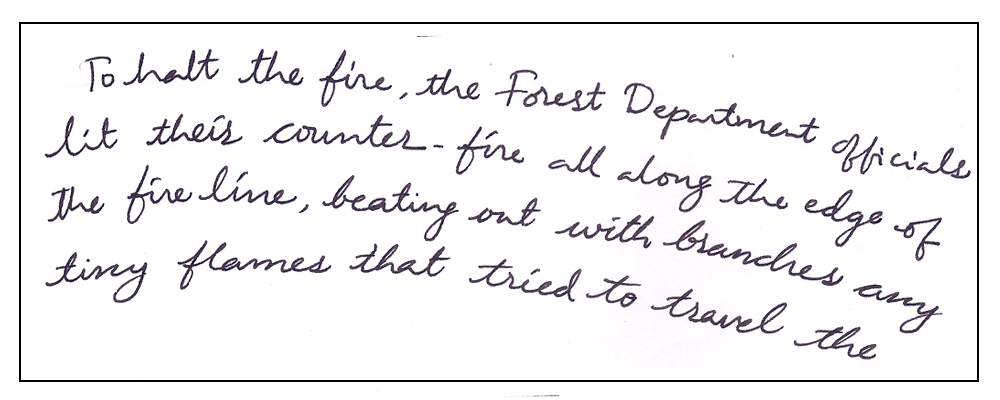 To halt the fire, the Forest Department officials
lit their counter-fire all along the edge of
the fire line, beating out with branches any
tiny flames that tried to travel the